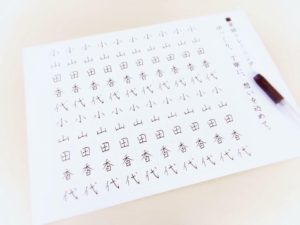 ゆっくり、丁寧に、想いを込めて。
小山田香代小山田香代
小山田香代小山田香代
小山田香代小山田香代
小山田香代小山田香代
小山田香代小山田香代
小山田香代小山田香代
小山田香代小山田香代
小山田香代小山田香代
小山田香代小山田香代
小山田香代小山田香代